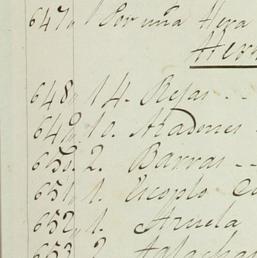 647. 1
Herr
648. 14. Rejas
649. 10. Aradores
650. 2. Barras
651. 1. Escoplo
652. 1. Azuela
653. 2.